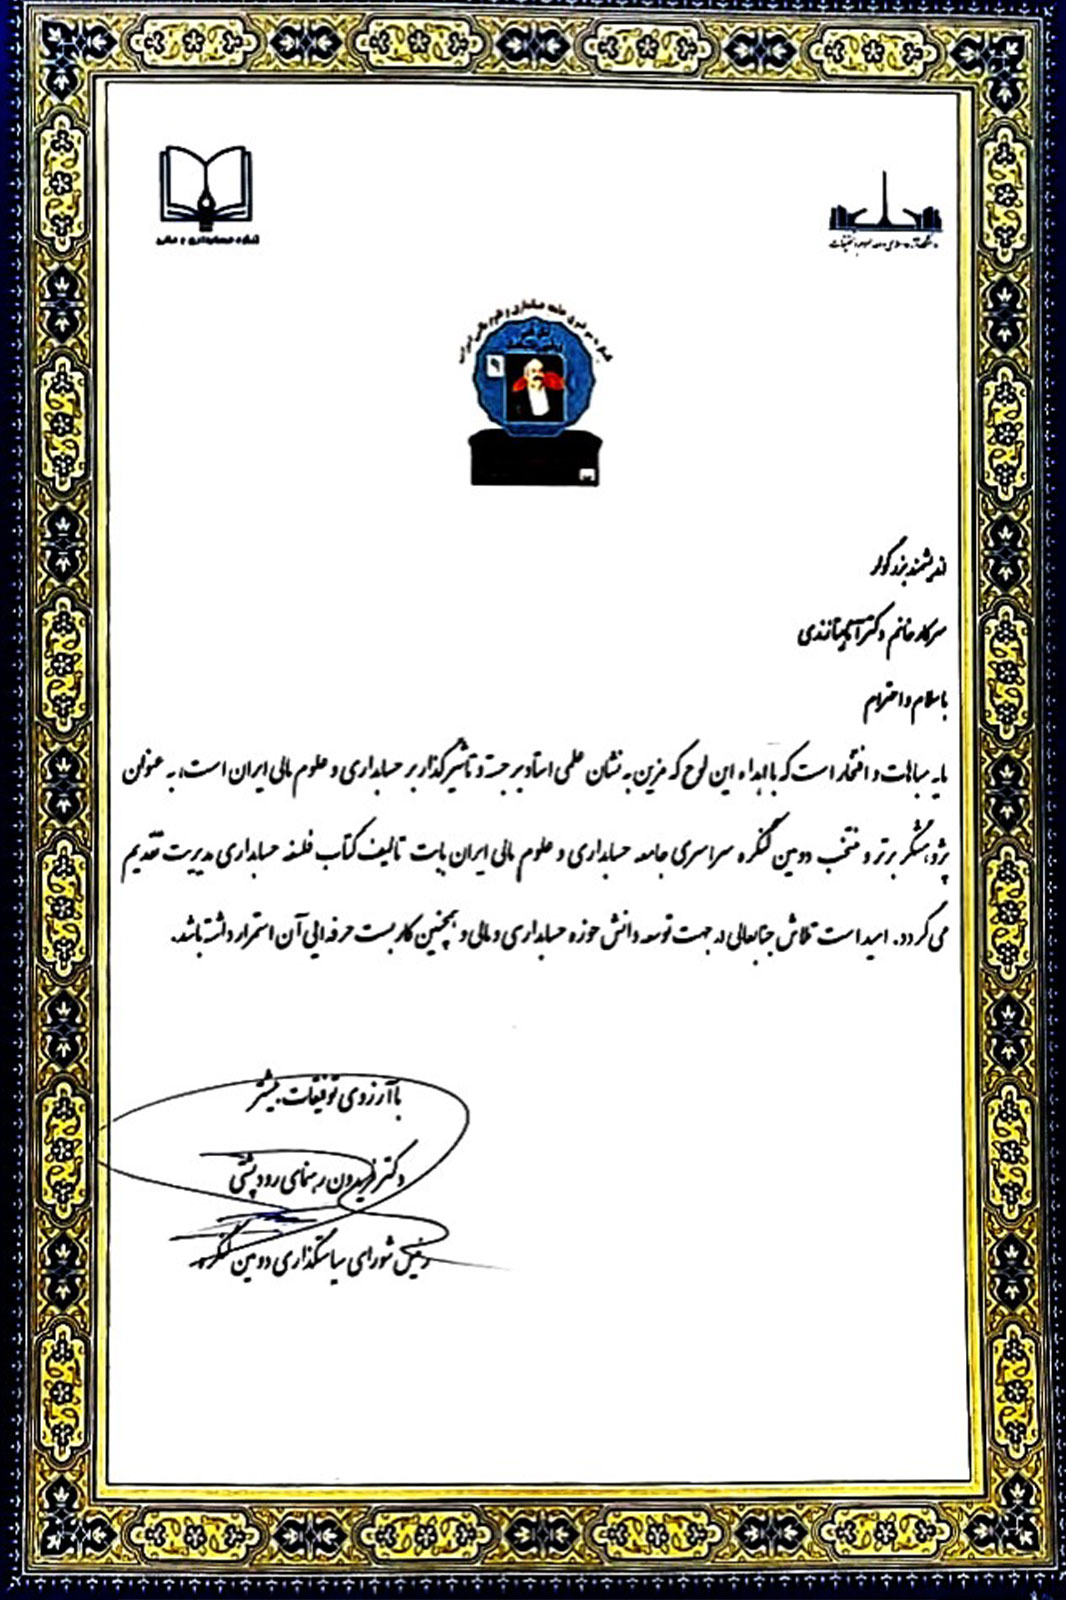 اندیشمند بزرگوار
سرکار خانم دکتر آناهیتا زندی
با سلام و احترام
مایه مباهات و افتخار است که با اهداء این لوح که مزین به نشان علمی استاد برجسته و تاثیرگذار بر حسابداری و علوم مالی ایران است، به عنوان
پژوهشگر برتر و منتخب دومین کنگره سراسری جامعه حسابداری و علوم مالی ایران بابت تالیف کتاب فلسفه حسابداری مدیریت تقدیم
می گردد. امید است تلاش جنابعالی در جهت توسعه دانش حوزه حسابداری و مالی و همچنین کاربست حرفه ایی آن استمرار داشته باشد.
با آرزوی توفیقات بیشتر
دکتر فریدون رهنمای رودپشتی
رئیس شورای سیاستگذاری دومین کنگره